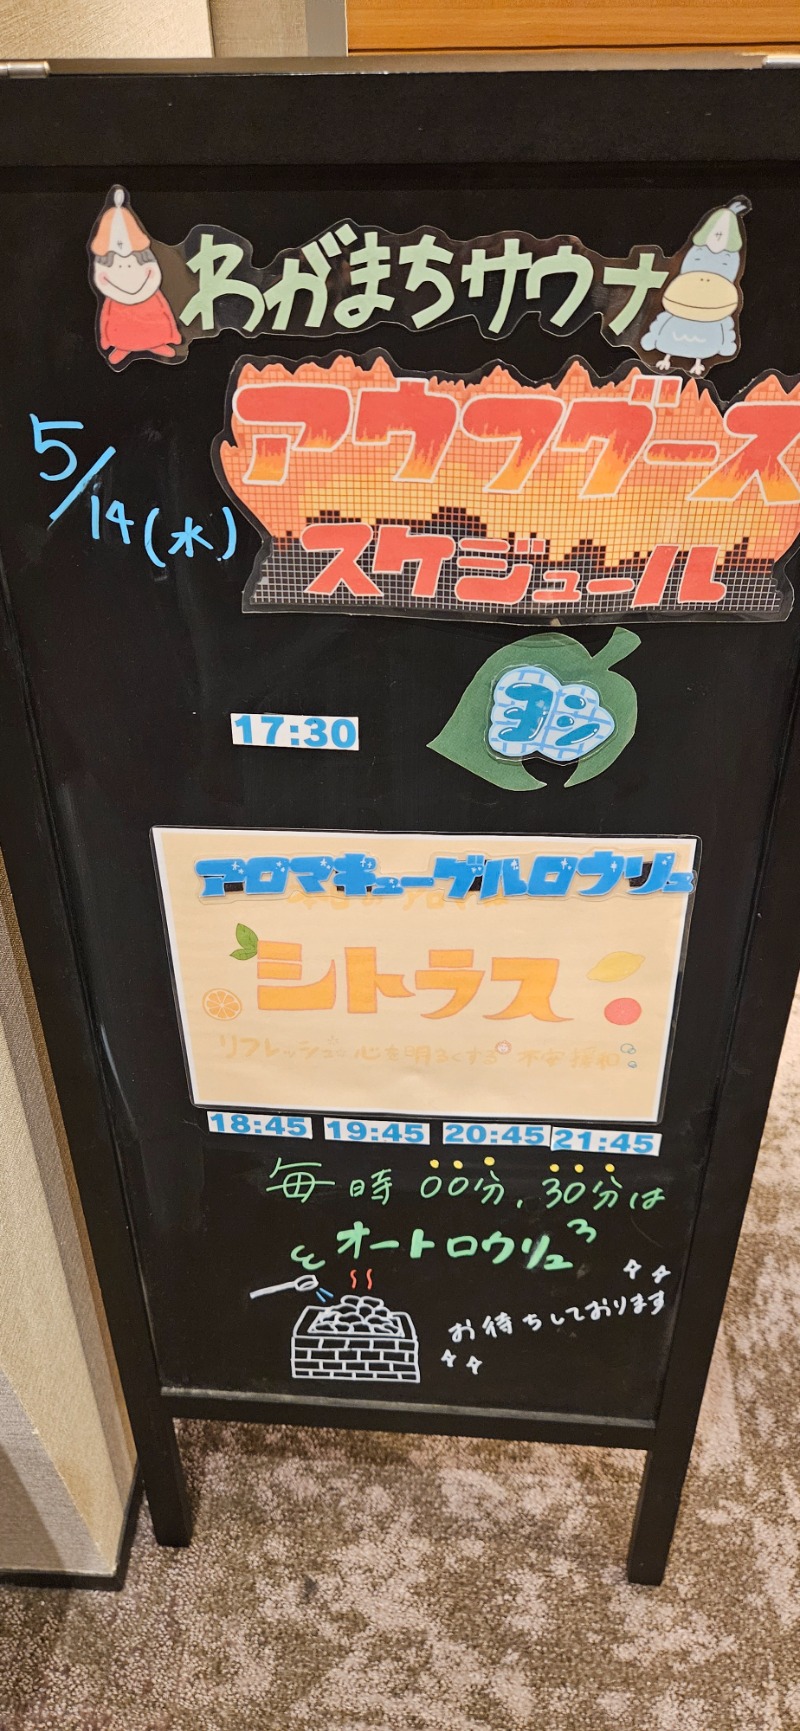 わがまちサウナ
アウフグース
5/14(水)
スケジュール
17:30
ヨシ
アロマキューゲルロウリュ
シトラス
リフレッシュ 心を明るくする 不安緩和
18:45 19:45 20:45 21:45
毎時00分、30分は
オートロウリュ
お待ちしております